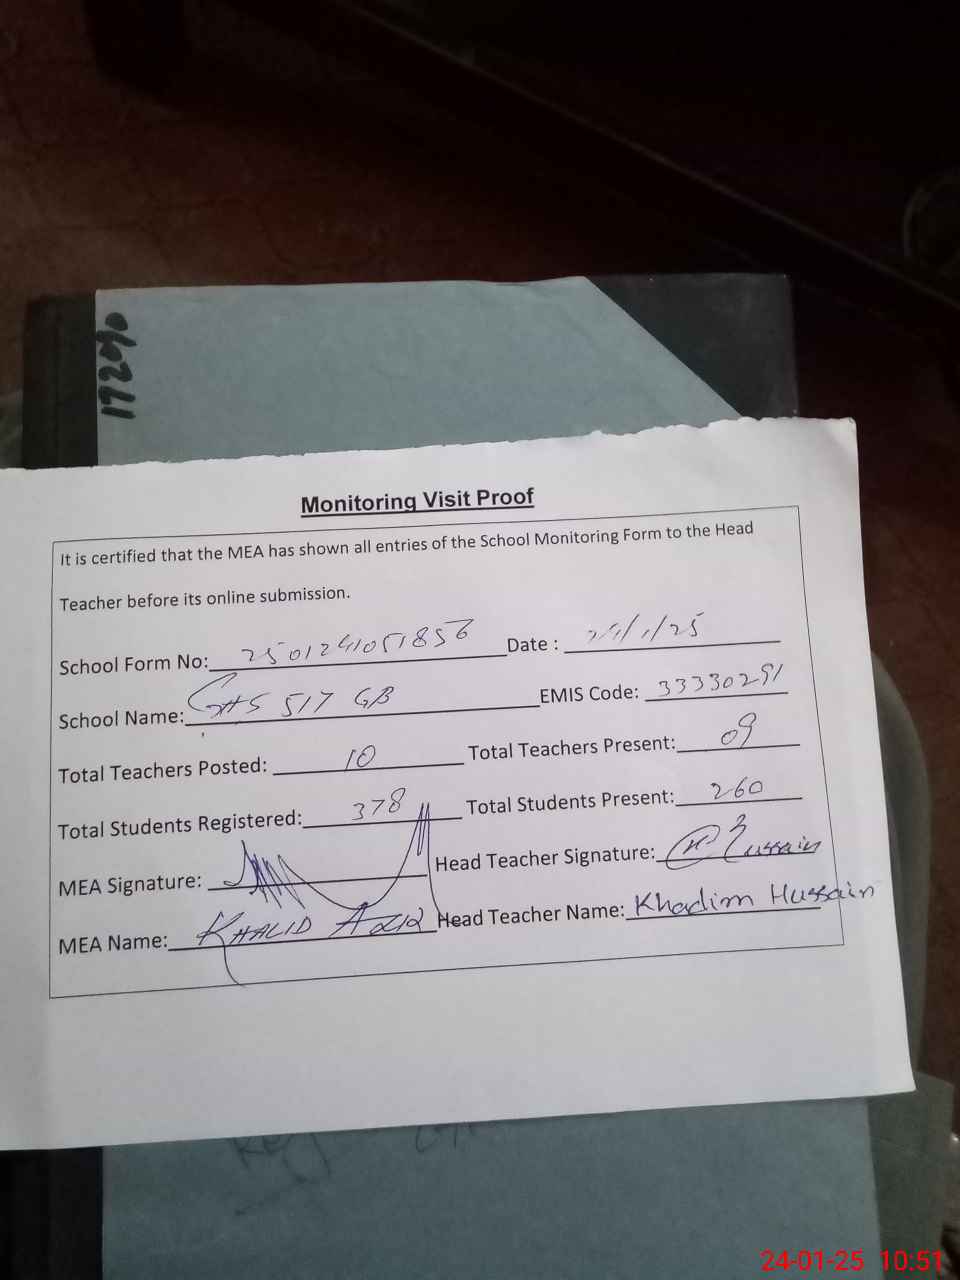 17290
Monitoring Visit Proof
It is certified that the MEA has shown all entries of the School Monitoring Form to the Head
Teacher before its online submission.
School Form No: 2501241051856 Date : 24/1/25
School Name: GHS 517 GB EMIS Code: 33330291
Total Teachers Posted: 10 Total Teachers Present: 09
Total Students Registered: 378 Total Students Present: 260
MEA Signature: Head Teacher Signature: Hussain
MEA Name: KHALID AZIZ Head Teacher Name: Khadim Hussain
24-01-25 10:51